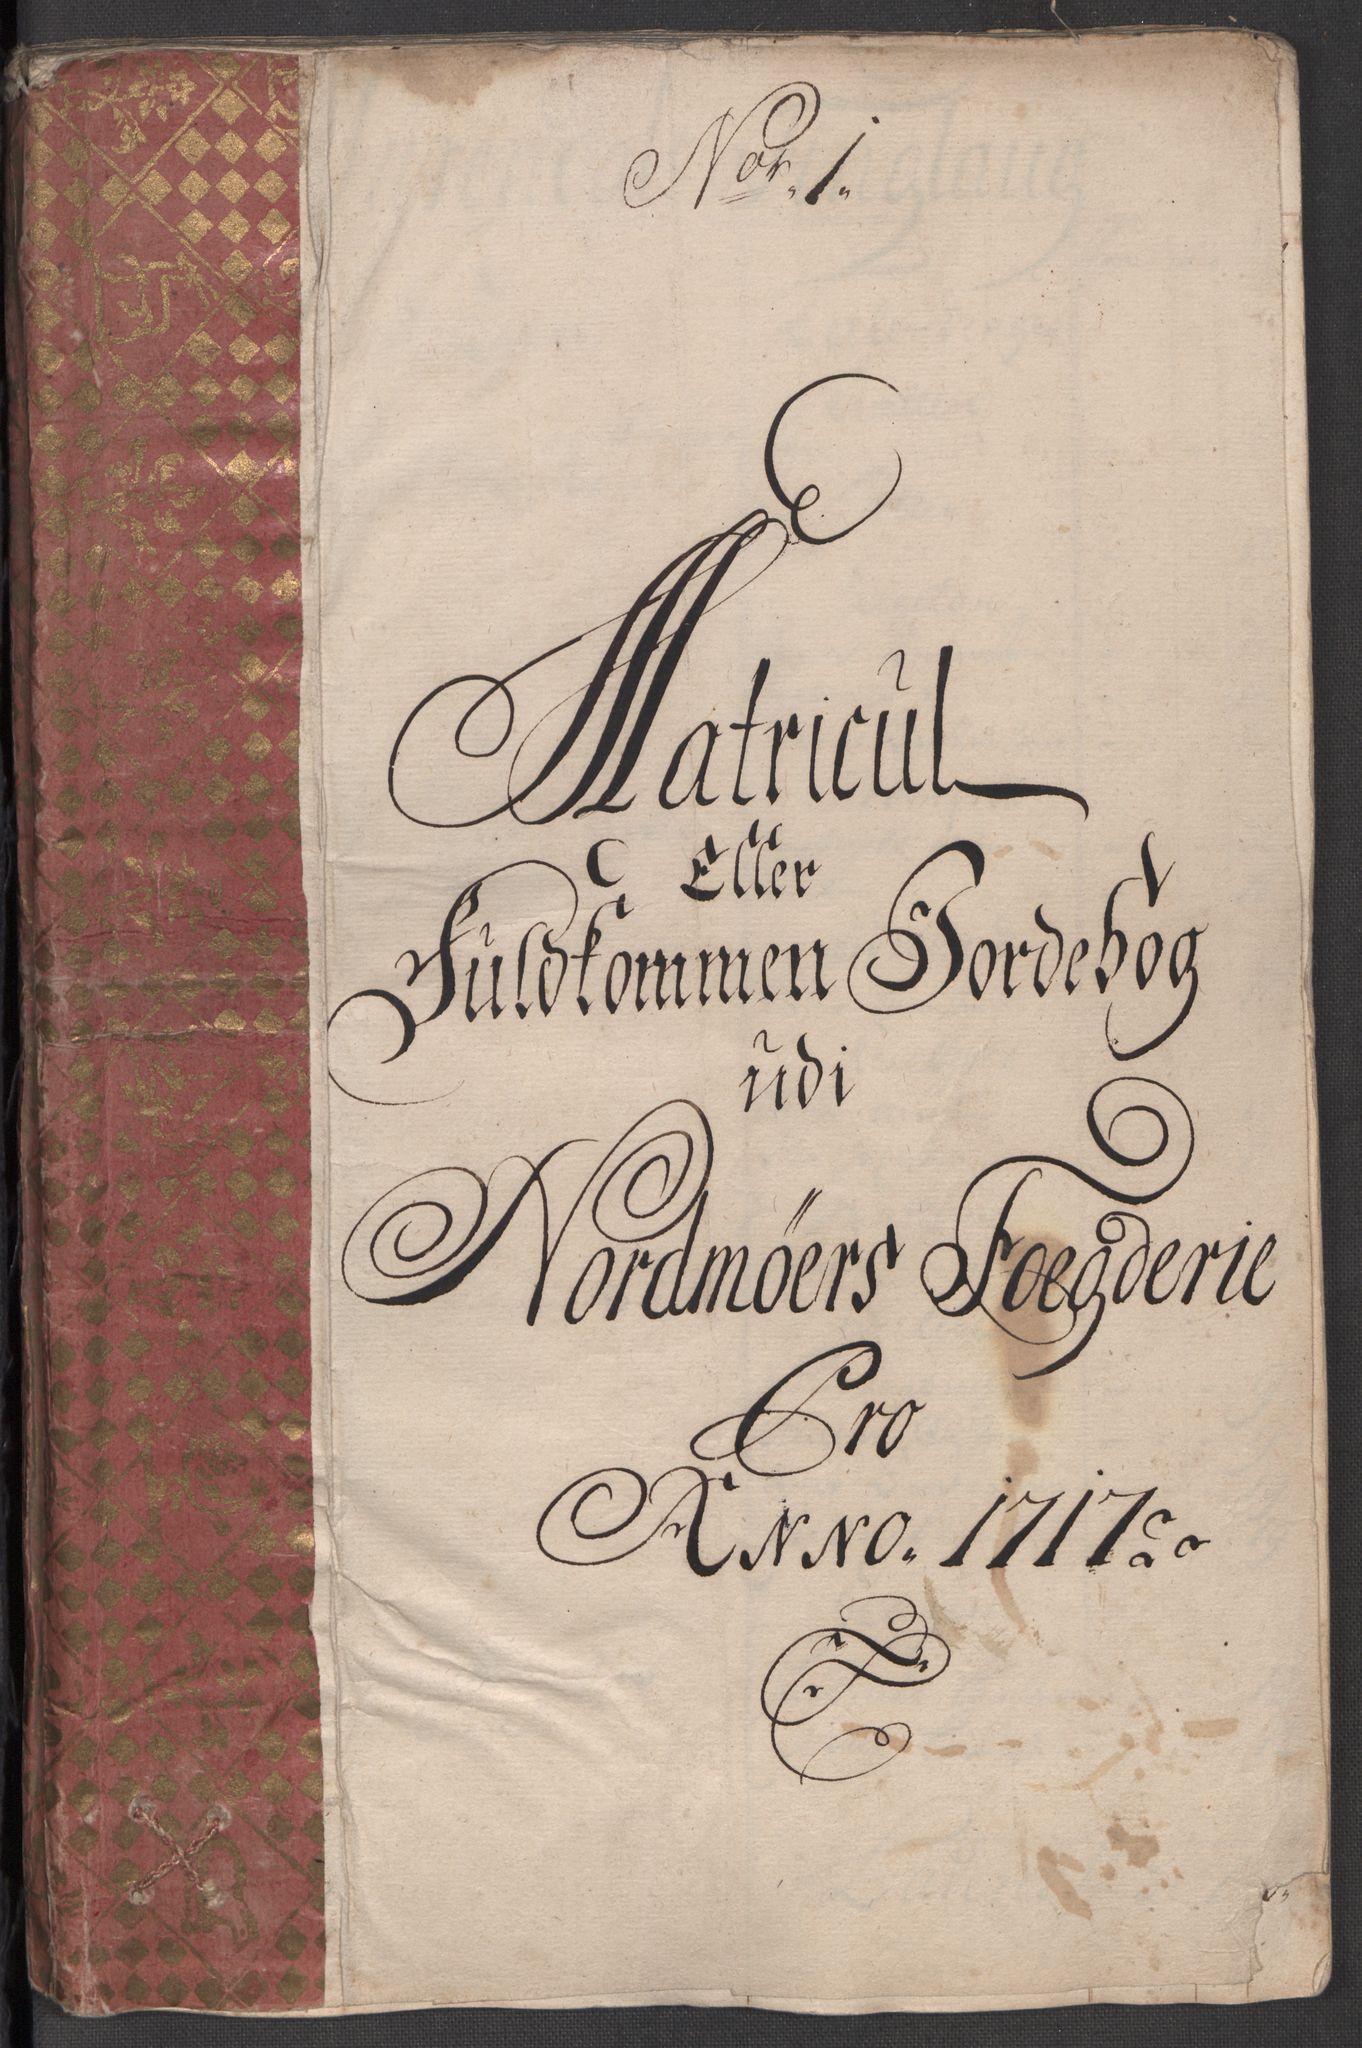 No̲r̲. 1.
Matricul
Eller
Fuldkommen Jordebog
udi
Nordmöers Foegderie
Pro
Anno. 1717